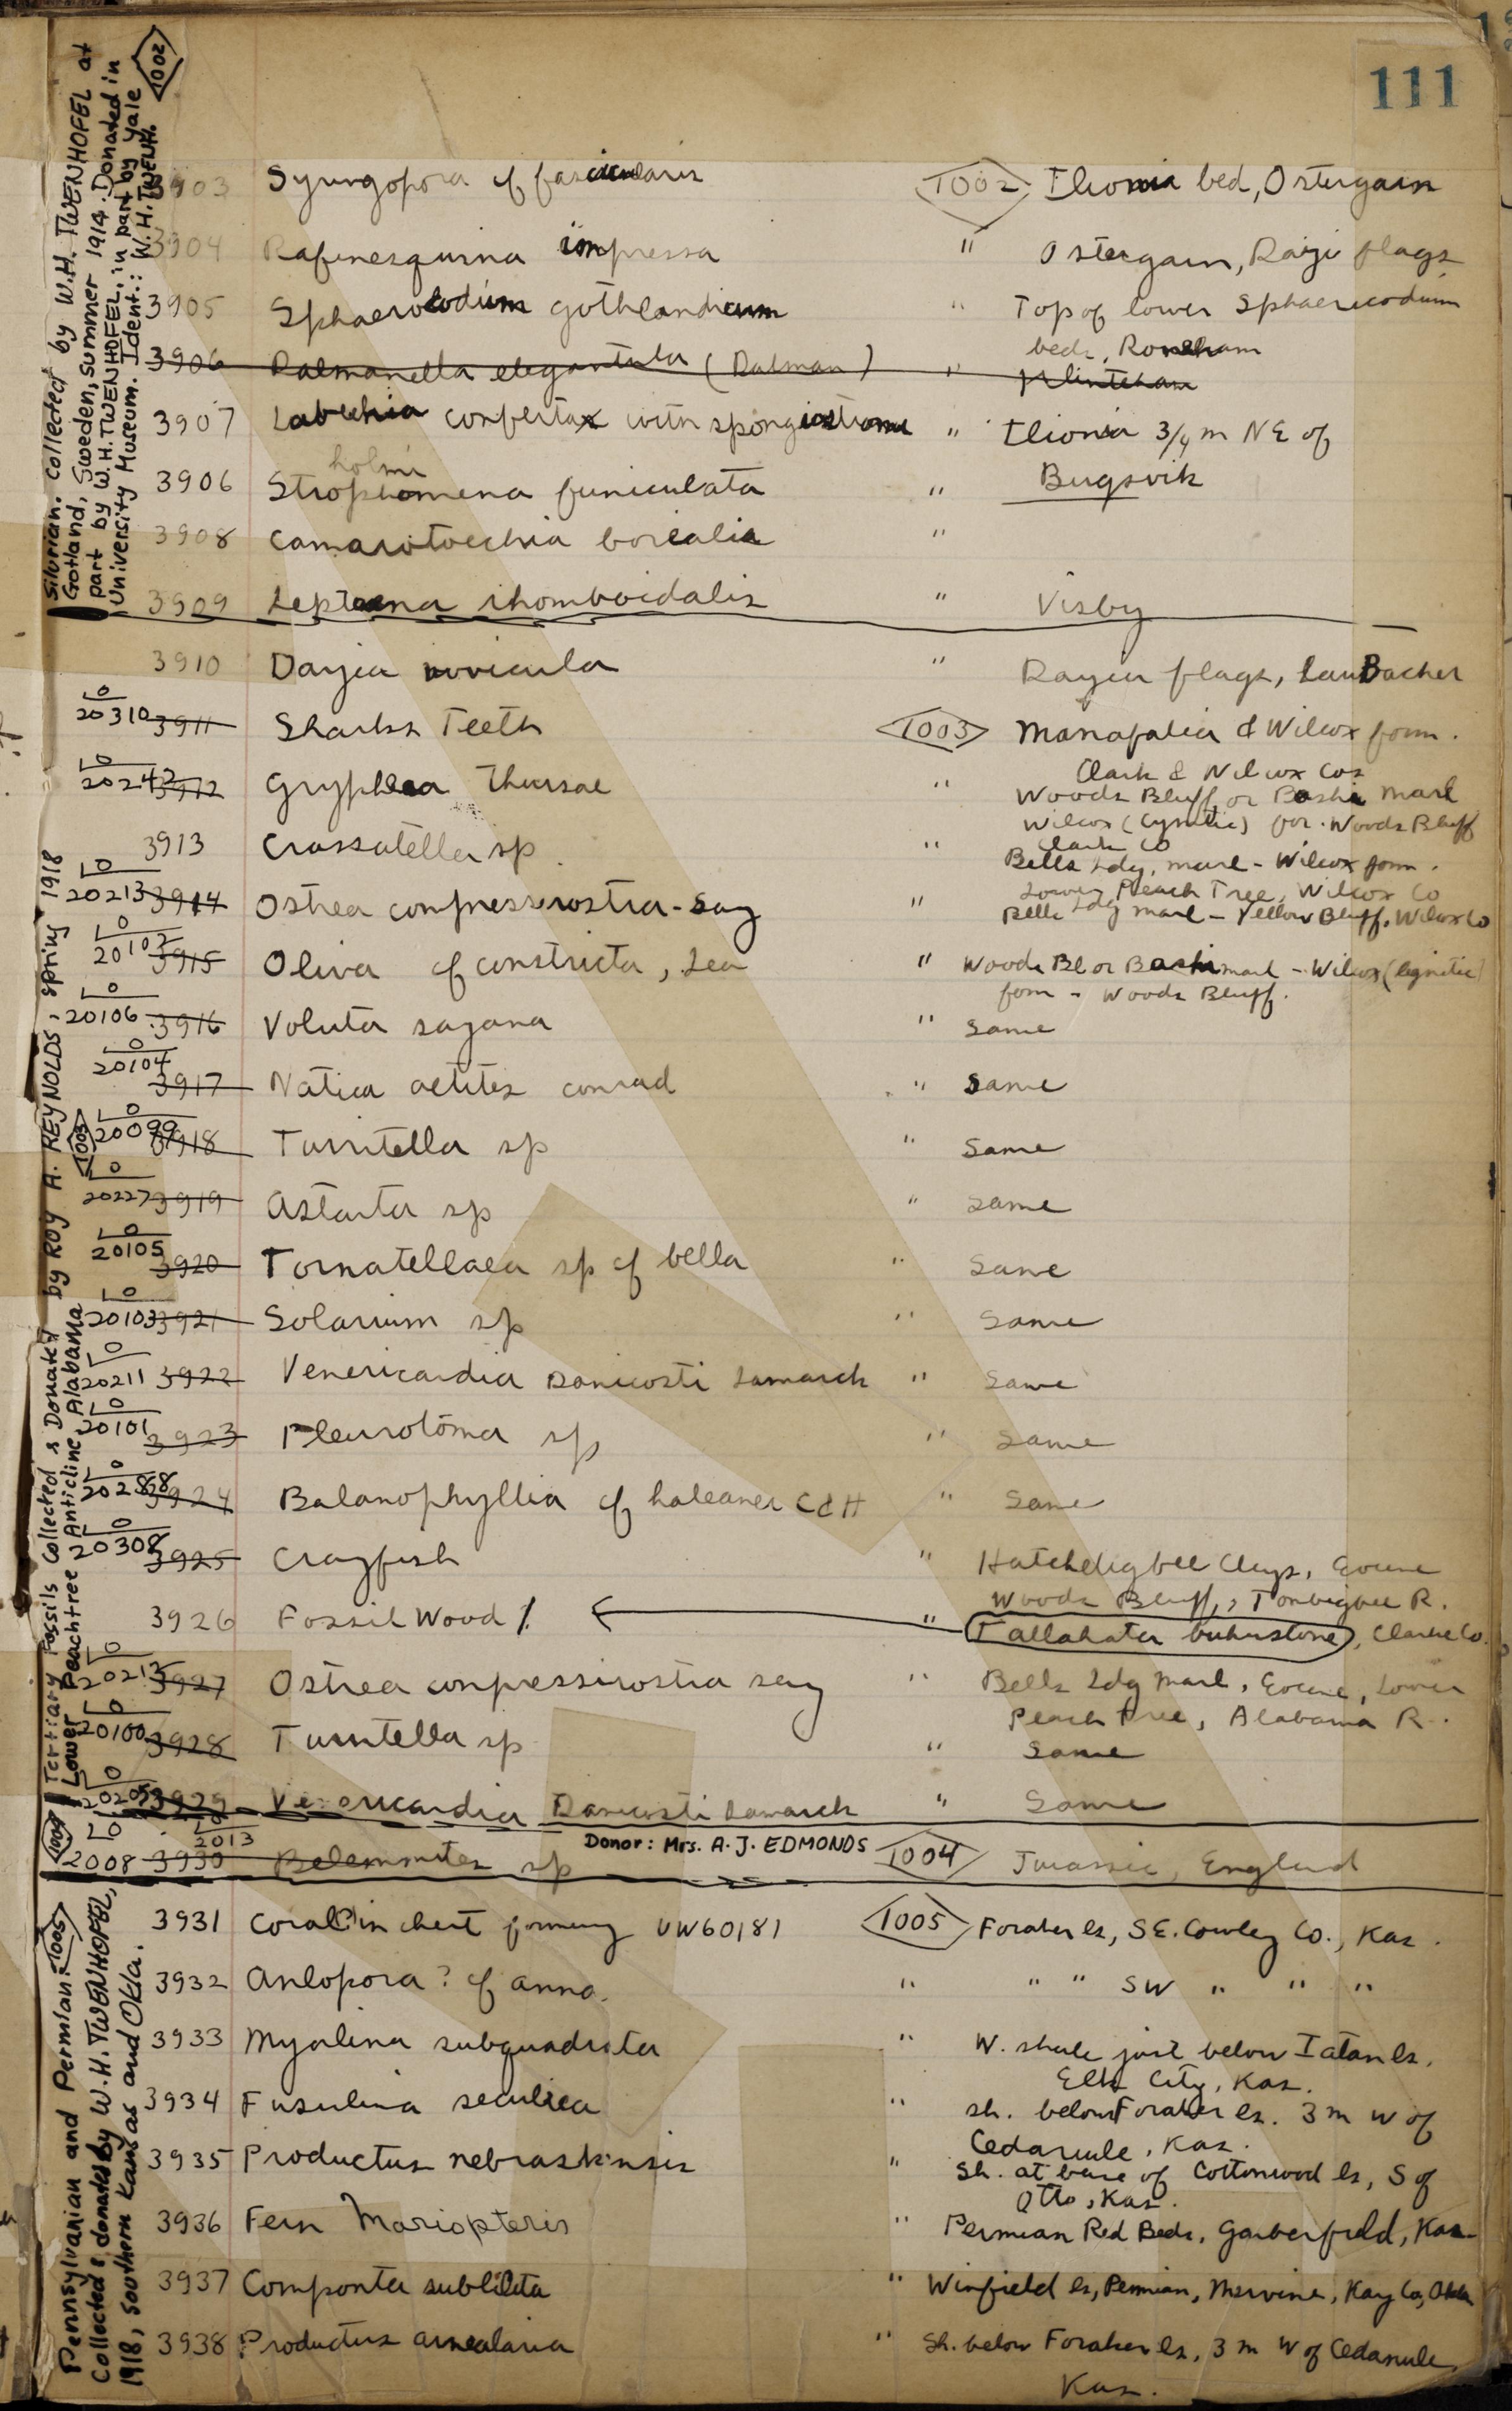 111
Silurian. collected by W.H. TWENHOFEL at
Gotland, Sweden, summer 1914. Donated in
part by W.H. TWENHOFEL, in part by Yale
University Museum. Ident.: W.H. TWENH. 1002
3903 Syringopora cf fascicularis 1002 Ilionia bed, Ostergarn
3904 Rafinesquina impressa " Ostergarn, Dayia flags
3905 Sphaerocodium gothlandicum " Top of lower Sphaerocodium
beds, Ronehamn
3906 Dalmanella elegantula (Dalman) "
3907 Labechia conferta with spongiostroma " Ilionia 3/4 m NE of
holmi
3906 Strophomena funiculata " Bugsvik
3908 Camarotoechia borealis "
3909 Leptaena rhomboidalis " Visby
3910 Dayia navicula " Dayia flags, Lau Backer
Tertiary Fossils collected & Donated by ROY A. REYNOLDS, spring 1918
Lower Peachtree Anticline, Alabama 1003
20310 3911 Sharks Teeth 1003 Manafalia & Wilcox form.
Clark & Wilcox Cos
20242 3912 Gryphaea thirsae " Woods Bluff or Bashi marl
Wilcox (Lignitic) for. Woods Bluff
Clark Co
3913 Crassatella sp. " Bells Ldg. marl - Wilcox form.
Lower Peach Tree, Wilcox Co
20213 3914 Ostrea compressirostra - Say " Bells Ldg marl - Yellow Bluff, Wilcox Co
20102 3915 Oliva cf constricta, Lea " Woods Bl or Bashi marl - Wilcox (lignitic)
form - Woods Bluff.
20106 3916 Voluta sayana " Same
20104 3917 Natica aetites conrad " Same
20099 3918 Turritella sp " Same
20227 3919 Astarta sp " Same
20105 3920 Tornatellaea sp cf bella " Same
20103 3921 Solarium sp " Same
20211 3922 Venericardia Danicosti Lamarck " Same
20101 3923 Pleurotoma sp " Same
20288 3924 Balanophyllia cf haleana C & H " Same
20308 3925 Crayfish " Hatchetigbee Clays, Eocene
Woods Bluff, Tombigbee R.
3926 Fossil Wood 1. " Tallahata buhrstone, Clarke Co.
20213 3927 Ostrea compressirostra say " Bells Ldg Marl, Eocene, Lower
Peach tree, Alabama R.
20100 3928 Turritella sp " Same
3929 Venericardia Danicosti Lamarck " Same
1004 2008 2013 3930 Belemnites sp Donor: Mrs. A.J. EDMONDS 1004 Jurassic, England
Pennsylvanian and Permian. 1005
Collected & donated by W.H. TWENHOFEL,
1918, Southern Kansas and Okla.
3931 Coral in chert forming UW60181 1005 Foraker ls, SE. Cowley Co., Kas.
3932 Aulopora? cf anna. " " " SW " " "
3933 Myalina subquadrata " W. shale just below Iatan ls.
Elk City, Kas.
3934 Fusulina secalica " sh. below Foraker ls. 3 m W of
Cedarvale, Kas.
3935 Productus nebraskensis " Sh. at base of Cottonwood ls, S of
Otto, Kas.
3936 Fern Mariopteris " Permian Red Beds, Garberfield, Kas.
3937 Composita subtilita " Winfield ls, Permian, Mervine, Kay Co, Okla
3938 Productus " Sh. below Foraker ls, 3 m W of Cedarvale,
Kas.